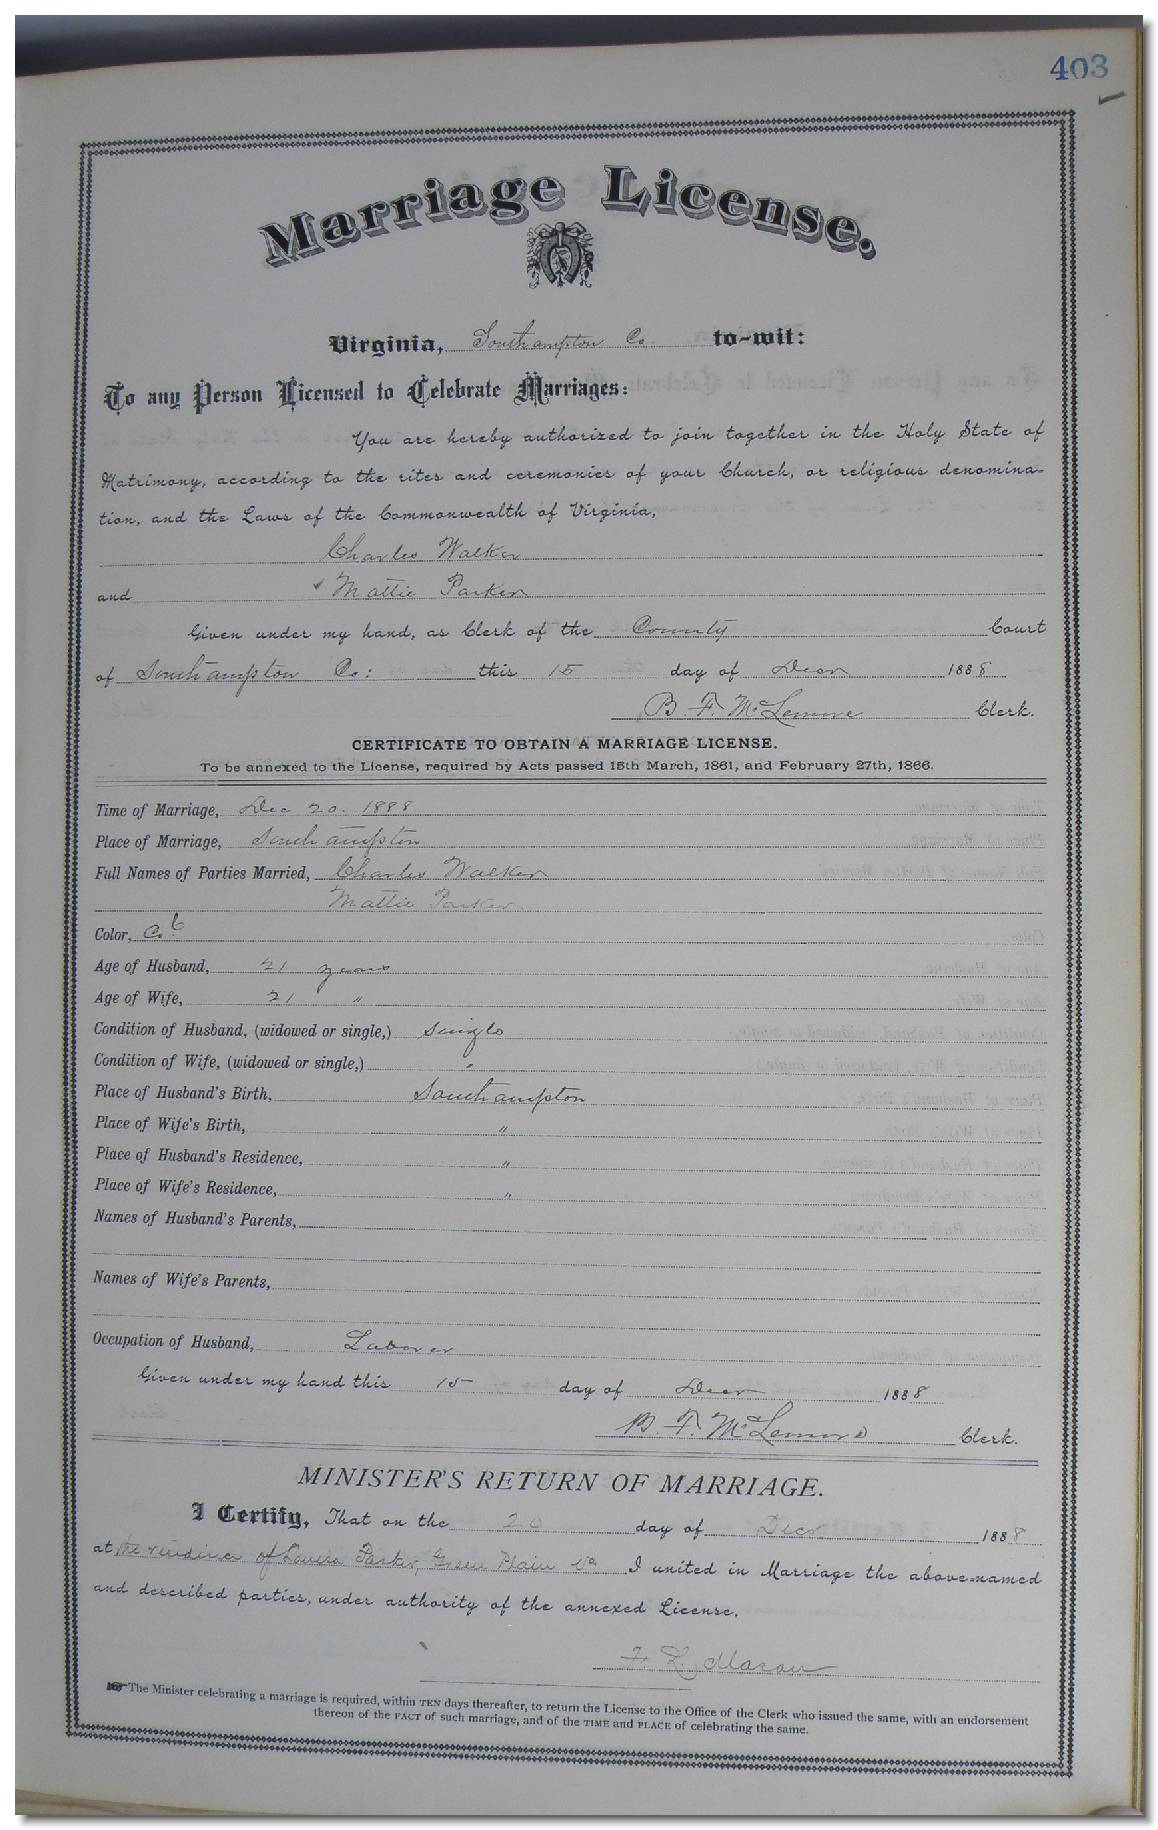 403
Marriage License.
Virginia, Southampton Co. to-wit:
To any Person Licensed to Celebrate Marriages:
You are hereby authorized to join together in the Holy State of
Matrimony, according to the rites and ceremonies of your Church, or religious denomina-
tion, and the Laws of the Commonwealth of Virginia,
Charles Walker
and Mattie Parker
Given under my hand, as Clerk of the County Court
of Southampton Co: this 15 day of Decr 1888
B. F. McLemore Clerk.
CERTIFICATE TO OBTAIN A MARRIAGE LICENSE.
To be annexed to the License, required by Acts passed 15th March, 1861, and February 27th, 1866.
Time of Marriage, Dec 20. 1888
Place of Marriage, Southampton
Full Names of Parties Married, Charles Walker
Mattie Parker
Color, Cold
Age of Husband, 21 years
Age of Wife, 21 "
Condition of Husband, (widowed or single,) Single
Condition of Wife, (widowed or single,) "
Place of Husband's Birth, Southampton
Place of Wife's Birth, "
Place of Husband's Residence, "
Place of Wife's Residence, "
Names of Husband's Parents,
Names of Wife's Parents,
Occupation of Husband, Laborer
Given under my hand this 15 day of Decr 1888
B. F. McLemore Clerk.
MINISTER'S RETURN OF MARRIAGE.
I Certify, That on the 20 day of Decr 1888
at the residence of Parker, Green Plain Va I united in Marriage the above-named
and described parties, under authority of the annexed License.
Mason
The Minister celebrating a marriage is required, within TEN days thereafter, to return the License to the Office of the Clerk who issued the same, with an endorsement
thereon of the FACT of such marriage, and of the TIME and PLACE of celebrating the same.